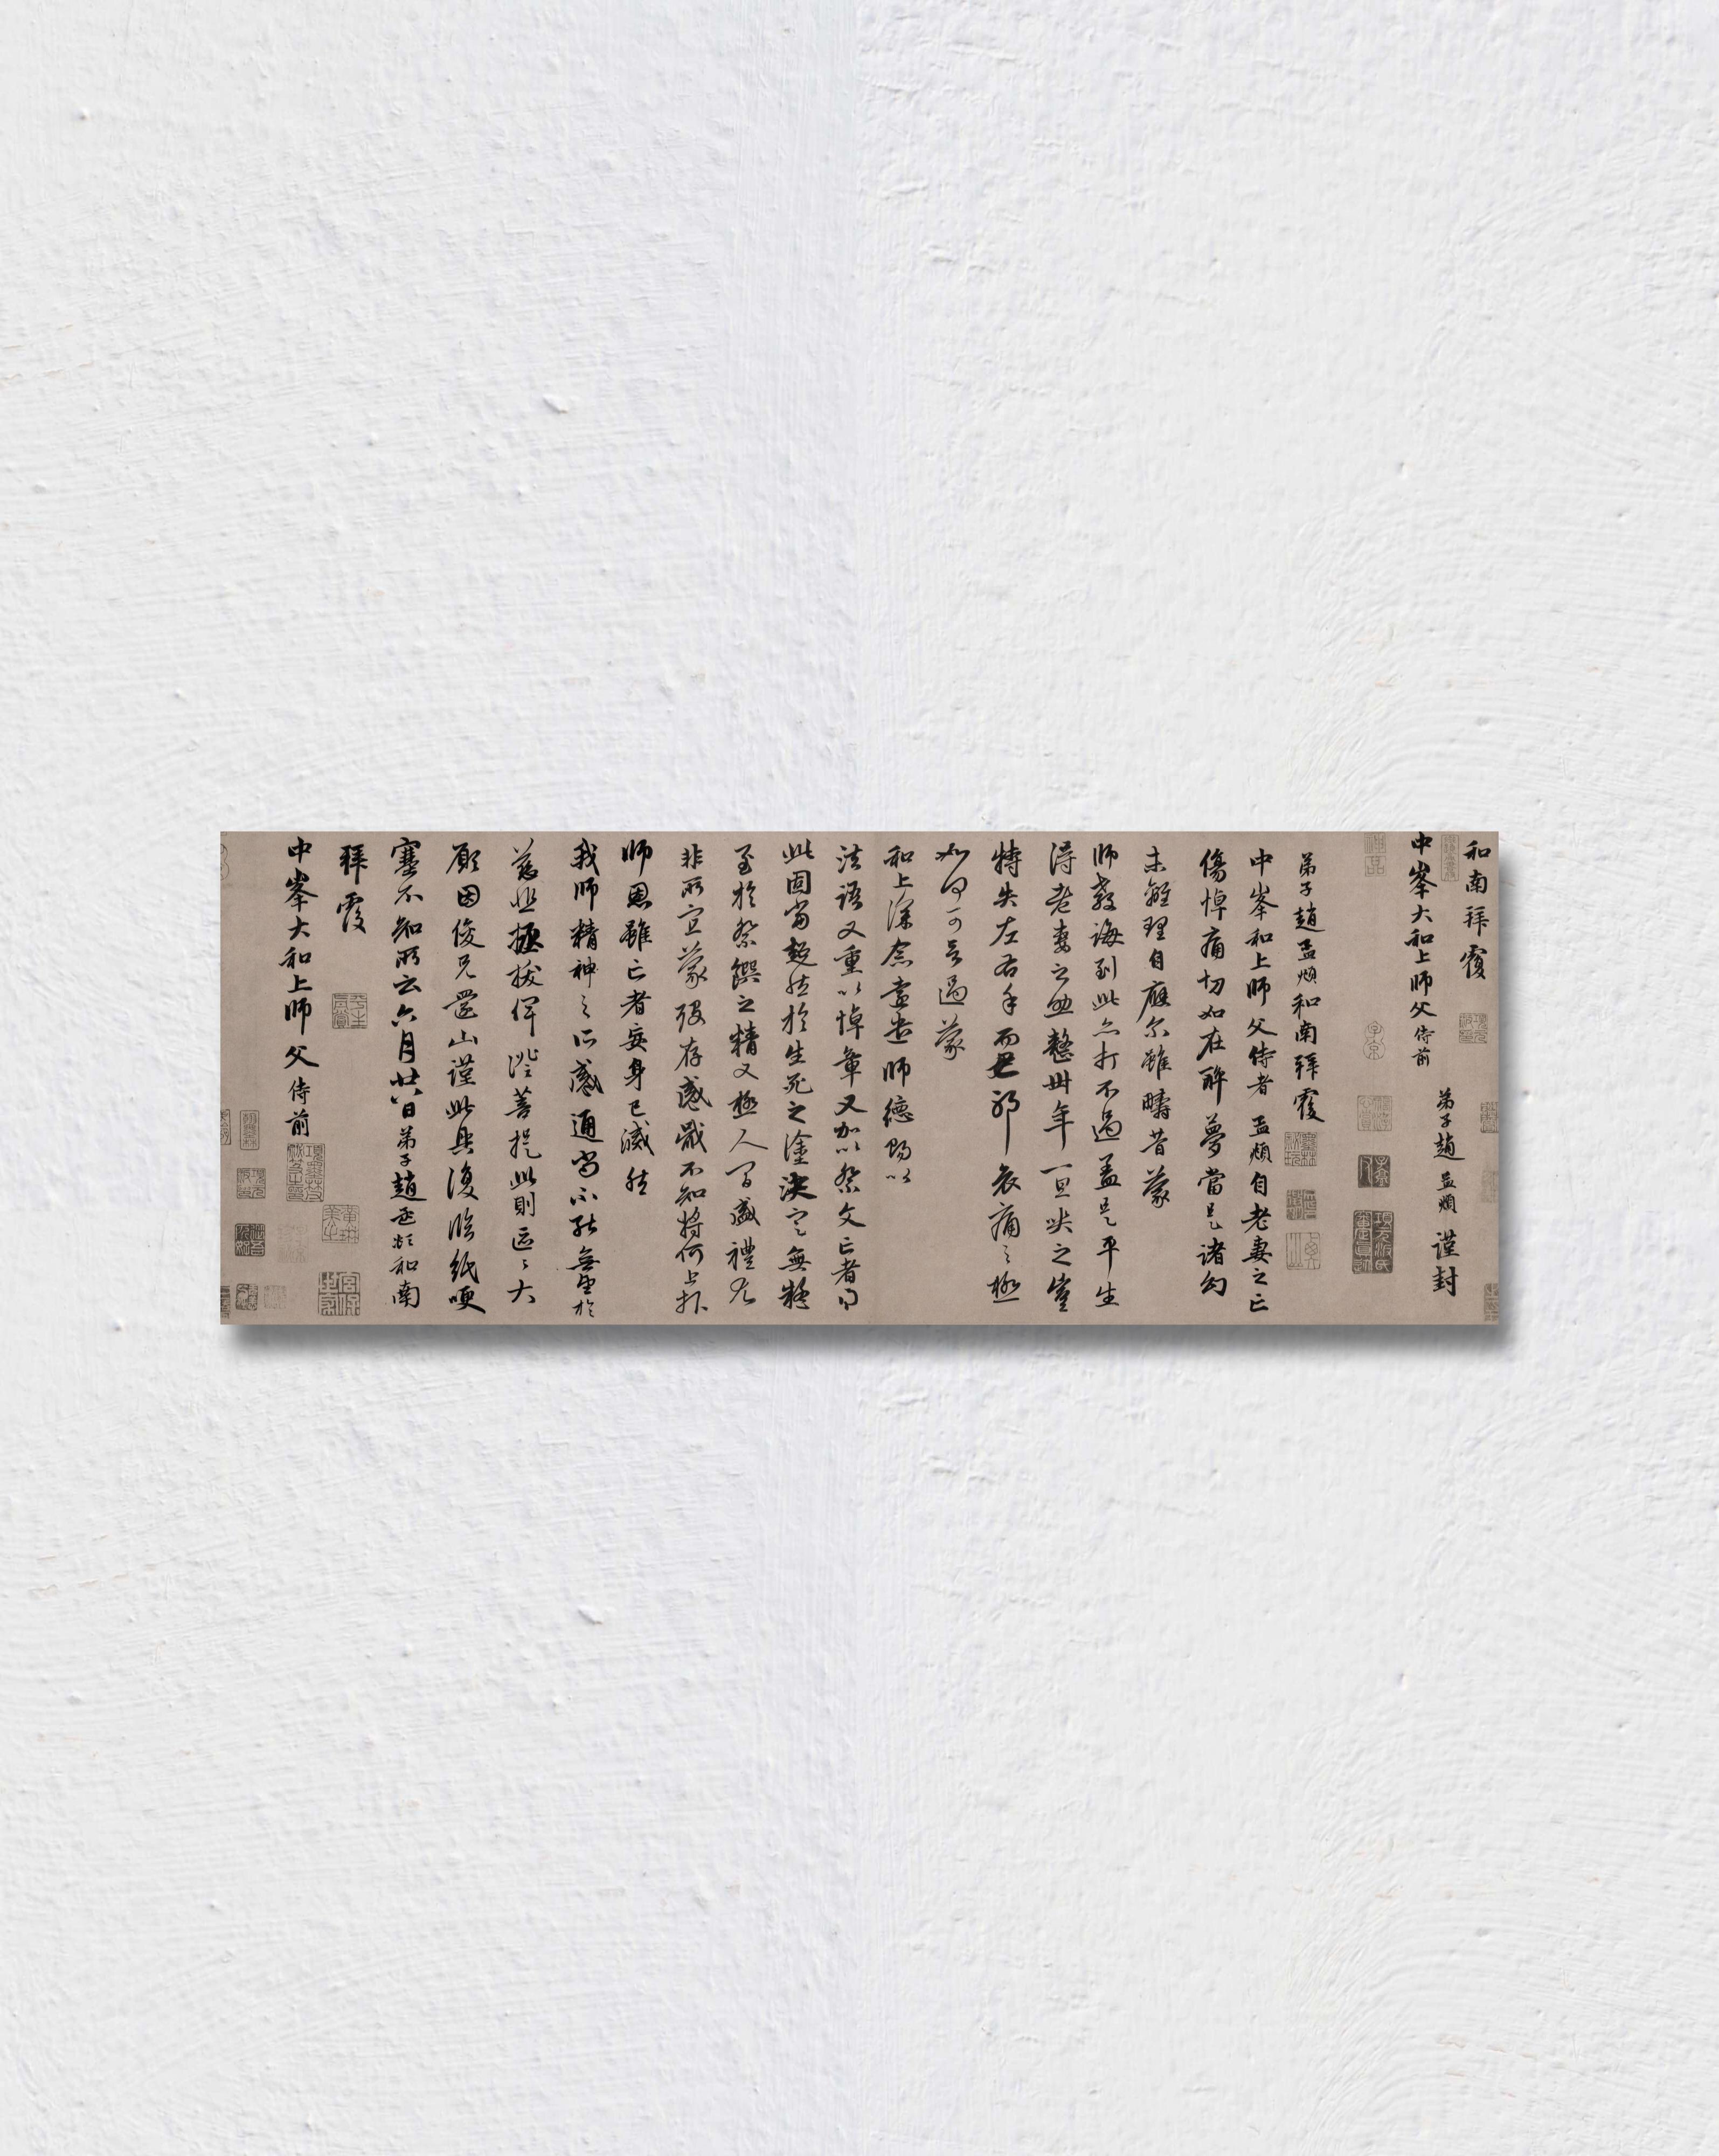 和南拜覆
中峯大和上師父侍前
弟子趙孟頫謹封
弟子趙孟頫和南拜覆
中峯和上師父侍者孟頫自老妻之亡
傷悼痛切如在醉夢當是諸幻
未離理自應尓雖疇昔蒙
師教誨到此亦打不過盖是平生
得老妻之助整卅年一旦哭之豈
特失左右手而已耶哀痛之極
如何可言過蒙
和上深念遠遣師德賜以
法語又重以悼章又加以祭文亡者得
此固當超然於生死之塗決定無疑
至於祭饌之精又極人間盛禮尤
非所宜蒙殁存感戴不知將何上報
師恩雖亡者妄身已滅然
我師精神之所感通尚不能無望於
慈悲拯拔俾證菩提此則區區大
願因俊兄還山謹此具復臨紙哽
塞不知所云六月廿八日弟子趙孟頫和南
拜覆
中峯大和上師父侍前